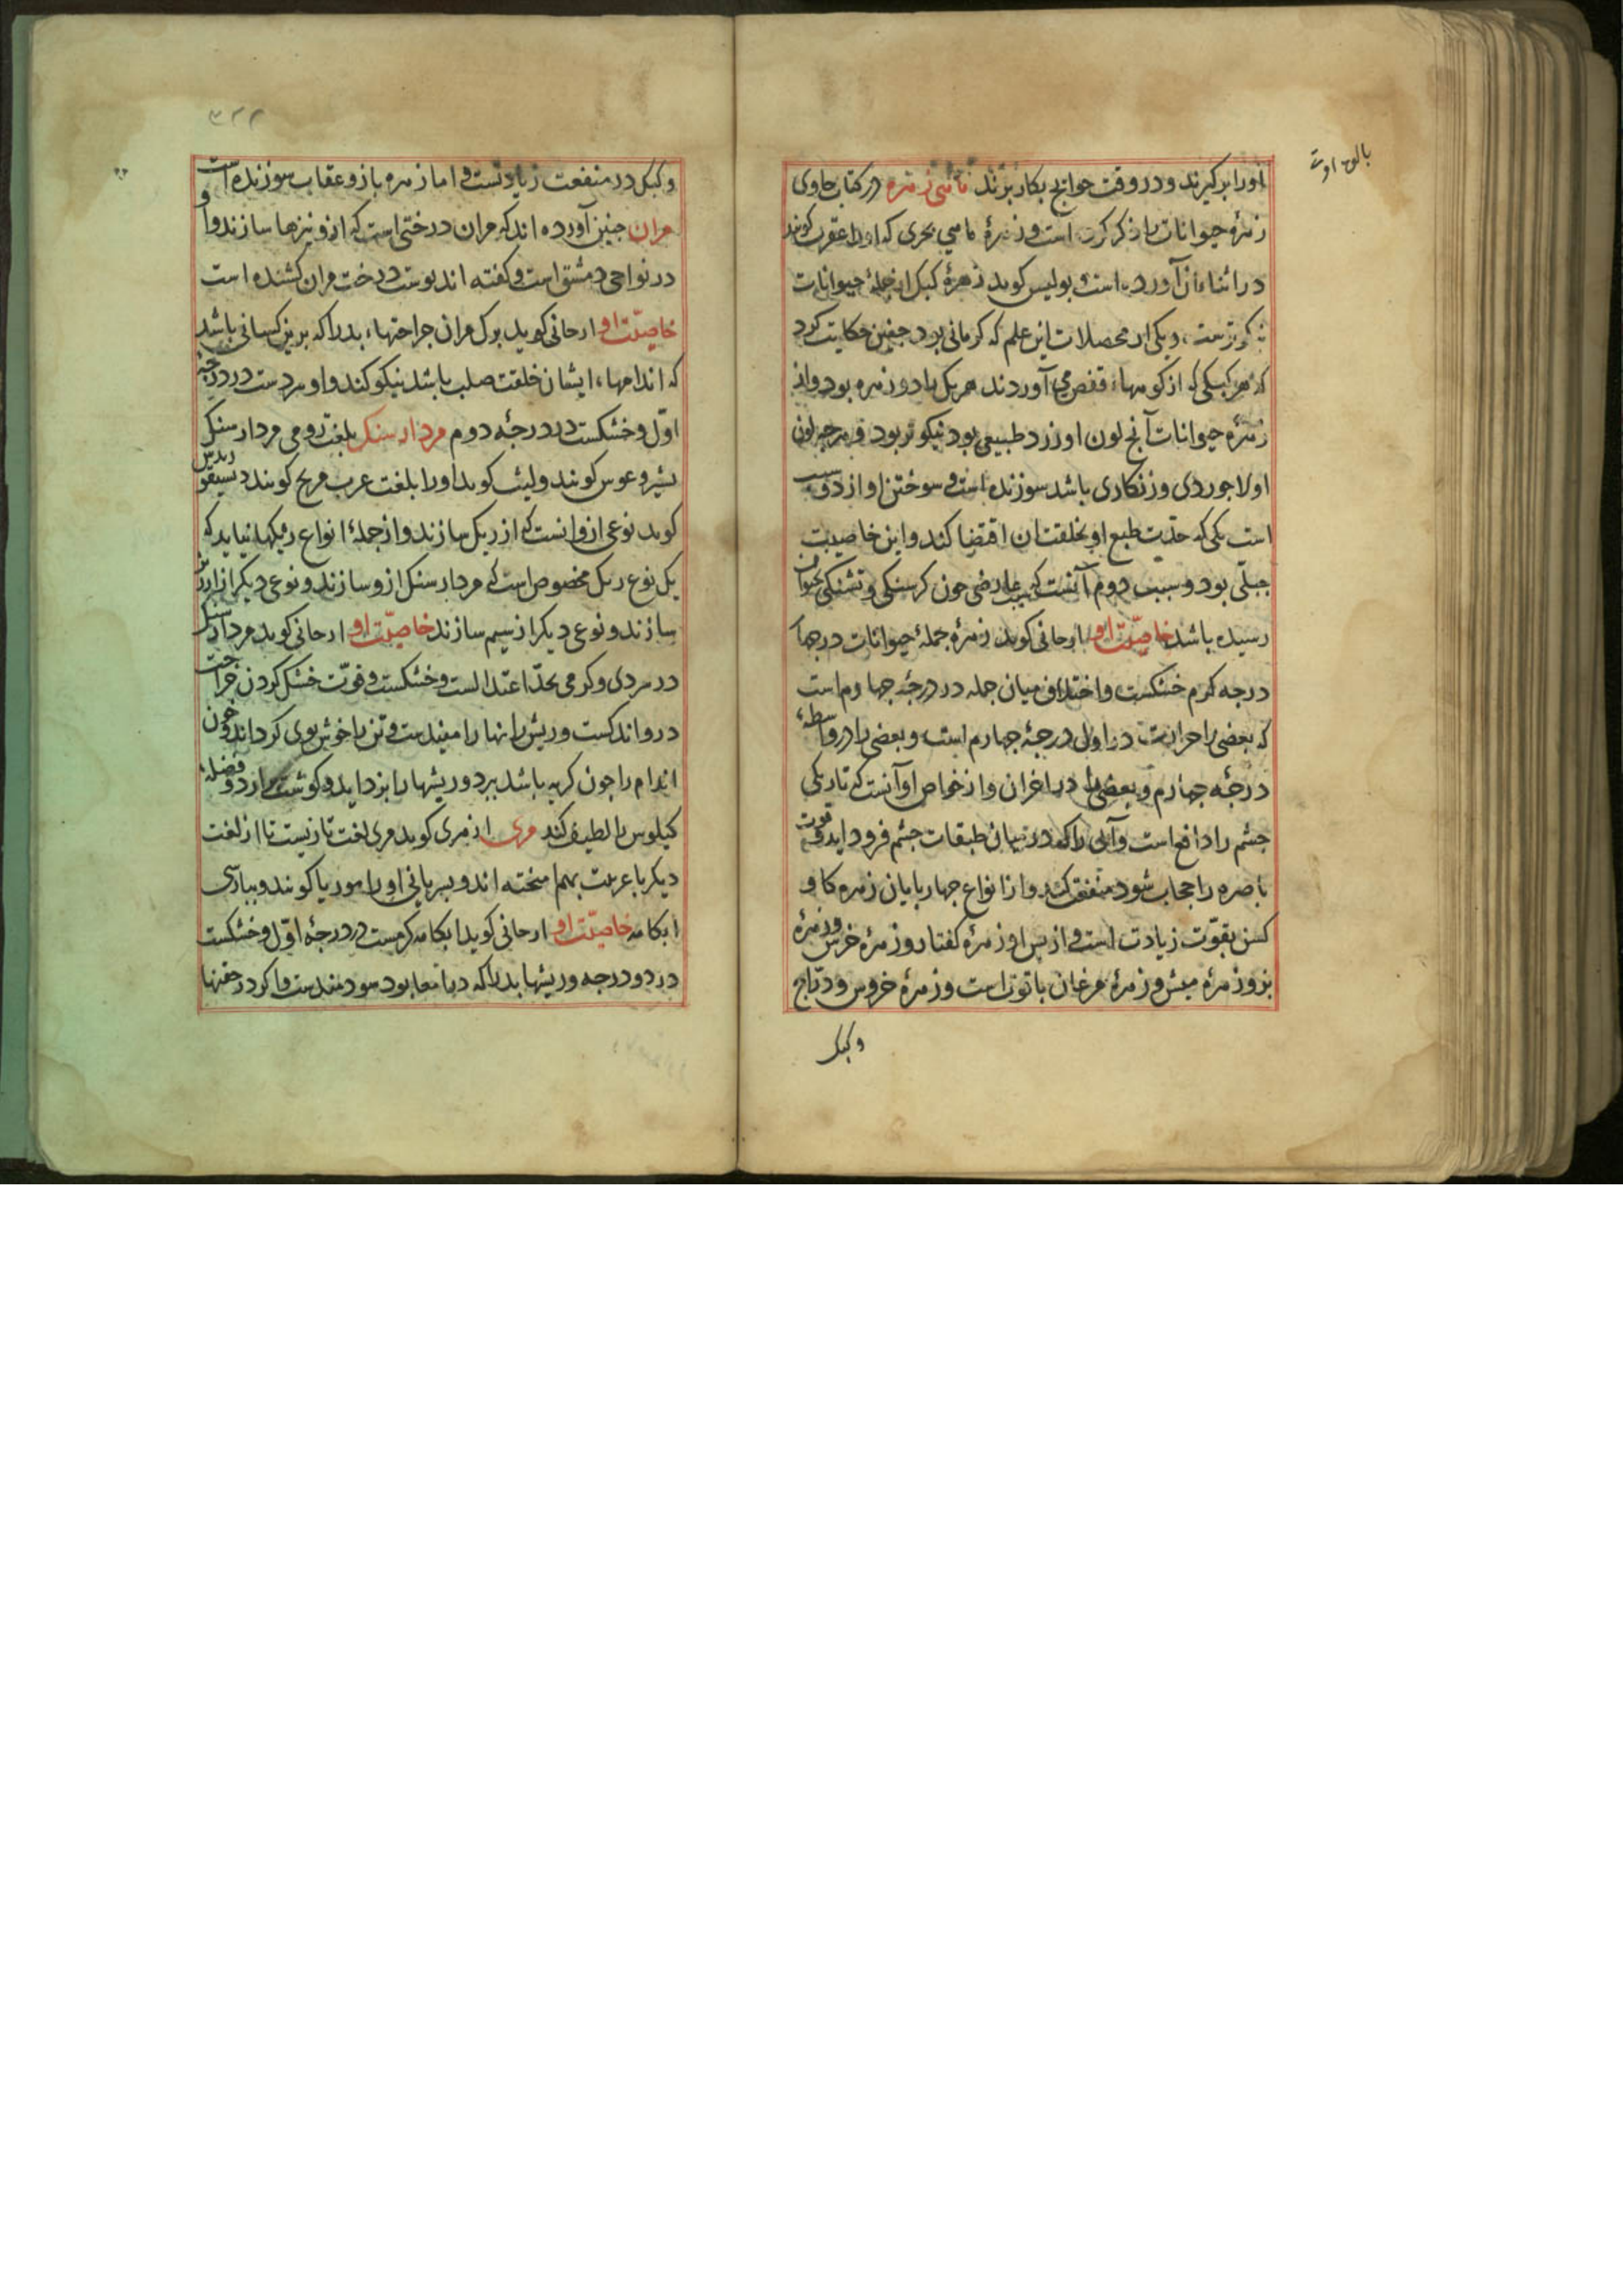 اورا برگیرند و در وقت حوایج بکار برند زهره در کتاب حاوی
زهرهٔ حیوانات را ذکر کرده است و زهرهٔ ماهی بحری که اورا عقرب کویند
در اثناء آن آورده است بولیس کوید زهرهٔ کبک از جملهٔ حیوانات
ویکی از محصلان این علم که کرمانی بود جنین حکایت کرد
که هر کبکی که از کوهها قفص می آوردند هریک را دو زهره بود و از
زهرهٔ حیوانات آنچ لون او زرد طبیعی بود نیکوتر بود و هرچه لون
او لاجوردی و زنکاری باشد سوزنده است و سوختن او از دو سبب
است یکی که حدت طبع او بخلقت ان اقتضا کند و این خاصیت
جبلی بود و سبب دوم آنست که بسبب عارضی جون کرسنکی و تشنکی بحیوان
رسیده باشد خاصیّت او ارجانی کوید زهرهٔ جملهٔ حیوانات درجها
درجه کرم خشکست و اختلاف میان جمله در درجهٔ جهارم است
که بعضی را حرارت در اول درجهٔ جهارم است و بعضی را در واسطهٔ
درجهٔ جهارم و بعضی را در اخر ان و از خواص او آنست که تاریکی
جشم را دافع است و آبی را که در میان طبقات جشم فرود اید و قوت
باصره را حجاب شود متفق کند و از انواع جهاربایان زهره کاو
کسن بقوّت زیادت است و از پس او زهرهٔ کفتار و زهرهٔ خرس و زهرهٔ
بز و زهرهٔ میش و زهرهٔ مرغان باقوتر است و زهرهٔ خروس و درّاج
وکبک
وکبک در منفعت زیادتست و اما زهره باز و عقاب سوزنده است
مران جنین آورده اند که مران درختی است که ازو نیزها سازند و او
در نواحی دمشق است و کفته اند بوست درخت مران کشنده است
خاصیّت او ارجانی کوید برک مران جراحتهاء بد را که برین کسانی باشد
که اندامهاء ایشان خلقت صلب باشد نیکو کند و او سردست در درجهٔ
اوّل و خشکست در درجهٔ دوم مردار سنک بلغت رومی مردار سنک
کویند و لیث کوید اورا بلغت عرب مریخ کویند
کوید نوعی ازو انست که از ریک سازند و از جملهٔ انواع ریکها نباید که
یک نوع ریک مخصوص است که مردار سنک ازو سازند و نوعی دیکر از ارزیز
سازند و نوعی دیکر از سیم سازند خاصیّت او ارجانی کوید مردار سنک
در سردی و کرمی بحدّ اعتدالست و خشکست و قوّت خشک کردن جراحت
درو اندکست و ریش رانها را مفیدست و تن را خوش بوی کرداند و جون
اندام را جون کریه باشد ببرد و ریشها را بزداید و کوشت ارد و فضلهٔ
کیلوس را لطیف کند مری از مری کوید مری لغت تازیست تا از لغت
دیکر با عربیت بهم امیخته اند و بسریانی اورا موریا کویند و ببارسی
ابکامه خاصیّت او ارجانی کوید ابکامه کرمست در درجهٔ اوّل و خشکست
در دو درجه و ریشها بد را که در امعا بود سودمندست و اکر در حقنها